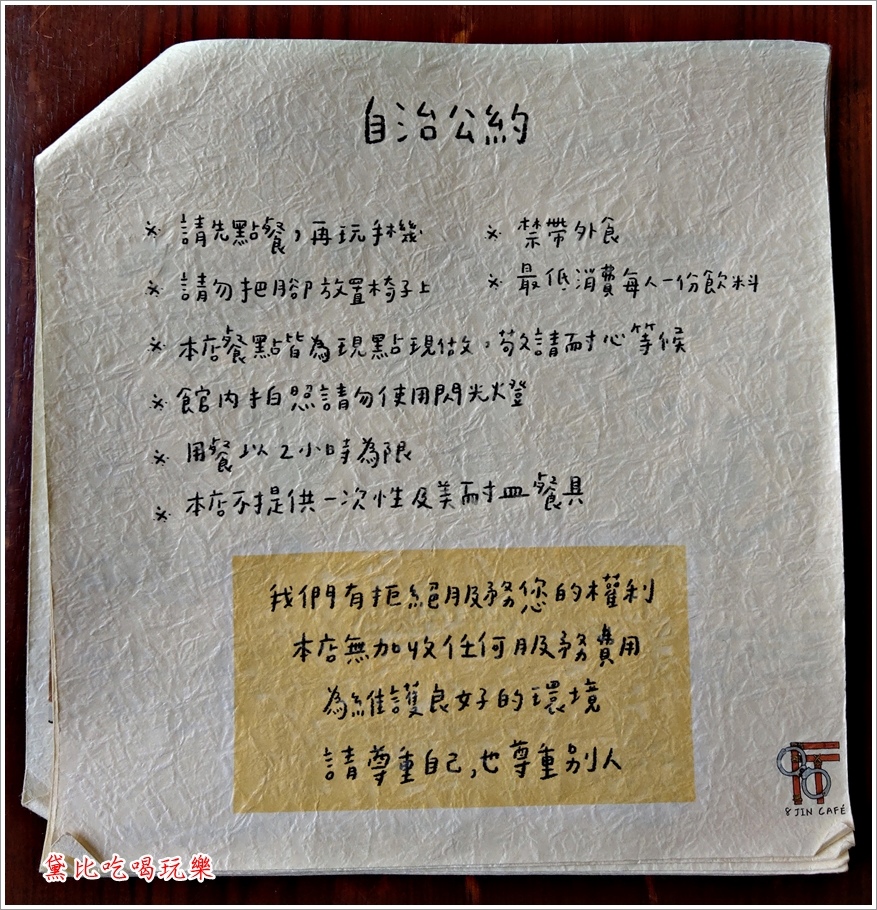 自治公約
※ 請先點餐，再玩手機
※ 禁帶外食
※ 請勿把腳放置椅子上
※ 最低消費每人一份飲料
※ 本店餐點皆為現點現做，敬請耐心等候
※ 館內拍照請勿使用閃光燈
※ 用餐以2小時為限
※ 本店不提供一次性及美耐皿餐具
我們有拒絕服務您的權利
本店無加收任何服務費用
為維護良好的環境
請尊重自己,也尊重別人
8 JIN CAFÉ
黛比吃喝玩樂